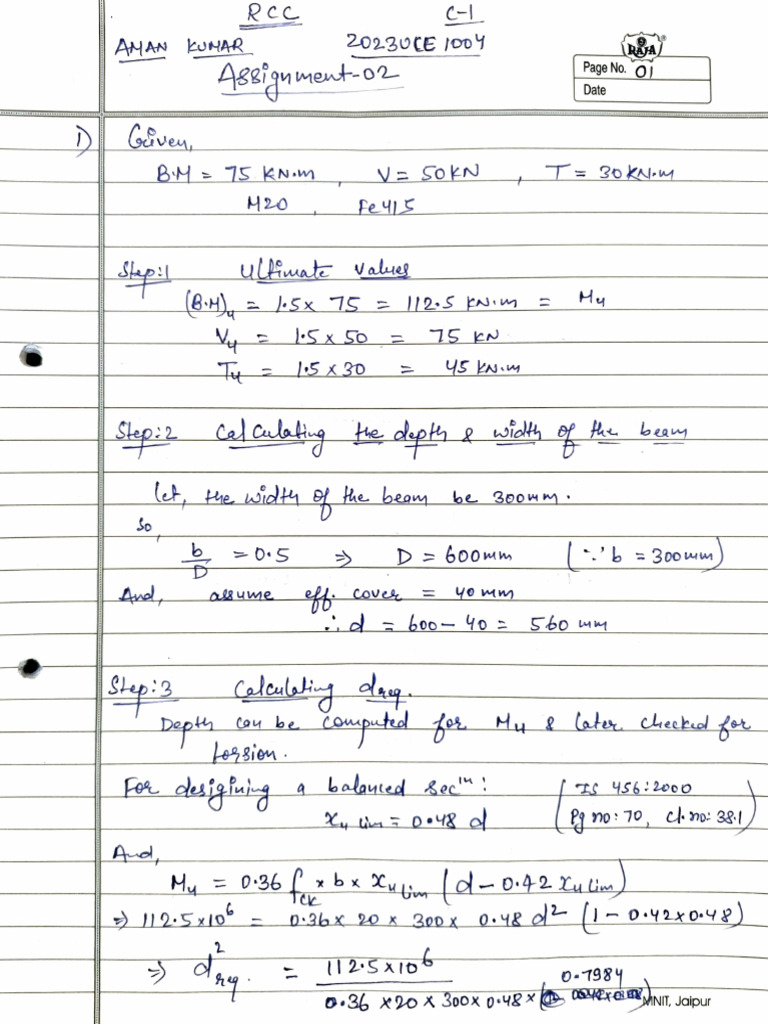 RCC C-1
AMAN KUMAR 2023UCE1004
Assignment-02
RAJA
Page No. 01
Date
1) Given,
B.M = 75 KN.m , V = 50KN , T = 30KN.m
M20 , Fe415
Step:1 Ultimate values
(B.M)u = 1.5 x 75 = 112.5 KN.m = Mu
Vu = 1.5 x 50 = 75 KN
Tu = 1.5 x 30 = 45 KN.m
Step:2 Calculating the depth & width of the beam
let, the width of the beam be 300mm.
So,
b/D = 0.5 ⇒ D = 600mm (∵ b = 300mm)
And, assume eff. cover = 40mm
∴ d = 600 - 40 = 560 mm
Step:3 Calculating dreq.
Depth can be computed for Mu & later checked for
torsion.
For desigining a balanced secⁱⁿ:
xu lim = 0.48 d
(IS 456:2000
Pg no: 70, cl. no: 38.1)
And,
Mu = 0.36 fck x b x xu lim (d - 0.42 xu lim)
⇒ 112.5x10⁶ = 0.36 x 20 x 300 x 0.48 d² (1 - 0.42x0.48)
⇒ d²req. = 112.5x10⁶ / 0.36 x 20 x 300 x 0.48 x 0.7984
MNIT, Jaipur